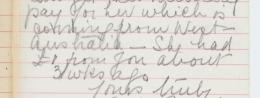 pay for her which is
coming from West
Australia – She had
£1 from you about
3 wks ago
Yours truly